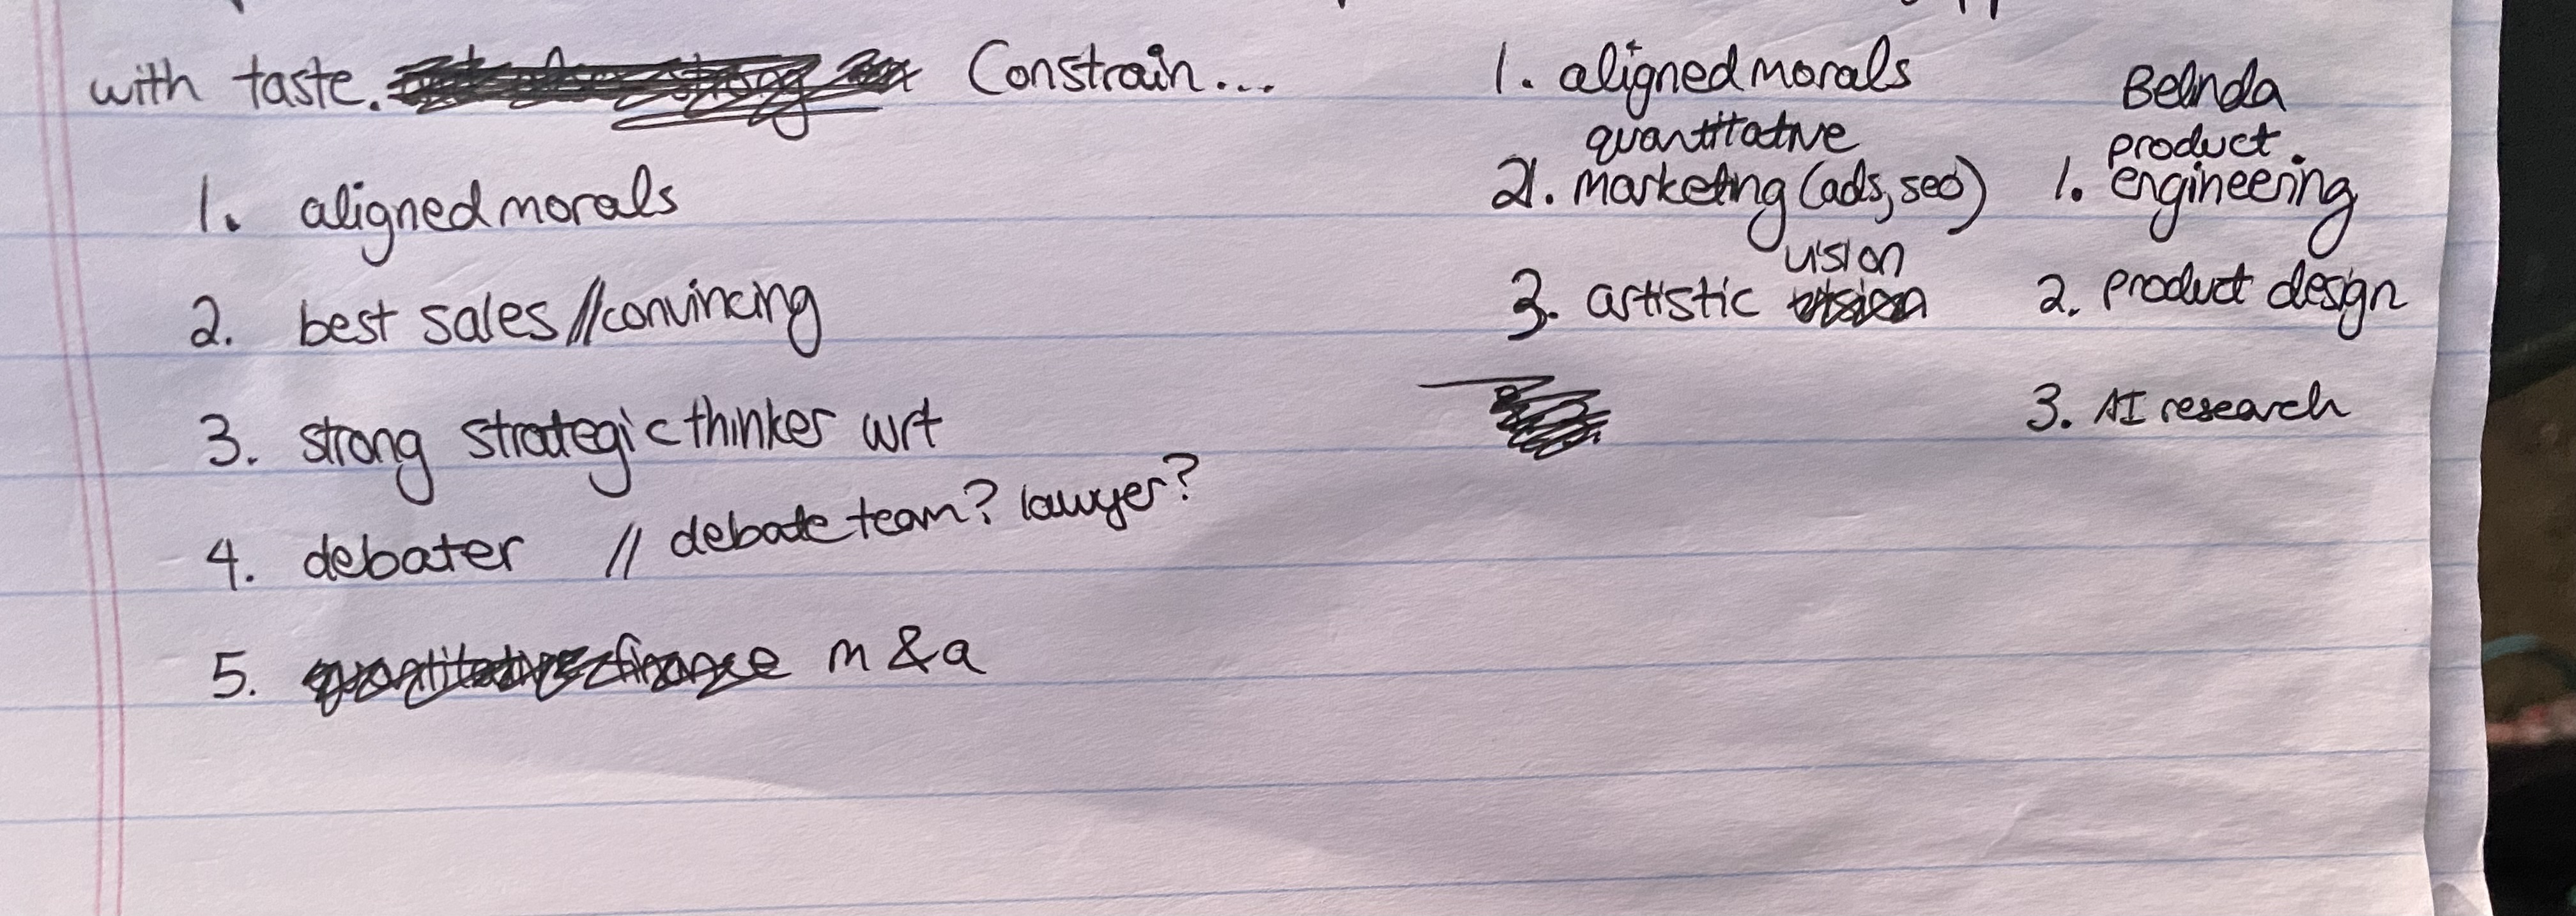 with taste. Constrain...
1. aligned morals
2. best sales // convincing
3. strong strategic thinker wrt
4. debater // debate team? lawyer?
5. quantitative finance m & a
1. aligned morals
quantitative
2. marketing (ads, seo)
vision
3. artistic vision
Belinda
product
1. engineering
2. product design
3. AI research